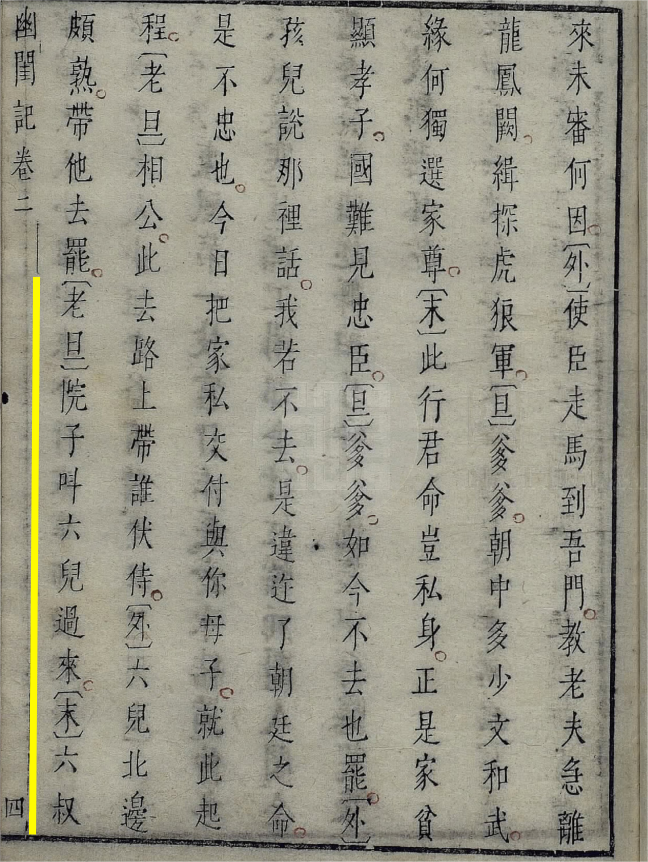 來未審何因。〔外〕使臣走馬到吾門。教老夫急離
龍鳳闕。緝探虎狼軍。〔旦〕爹爹。朝中多少文和武。
緣何獨選家尊。〔末〕此行君命豈私身。正是家貧
顯孝子。國難見忠臣。〔旦〕爹爹。如今不去也罷。〔外〕
孩兒說那裡話。我若不去。是違迕了朝廷之命。
是不忠也。今日把家私交付與你母子。就此起
程。〔老旦〕相公。此去路上帶誰伏侍。〔外〕六兒北邊
頗熟。帶他去罷。〔老旦〕院子叫六兒過來。〔末〕六叔
幽閨記卷二 四